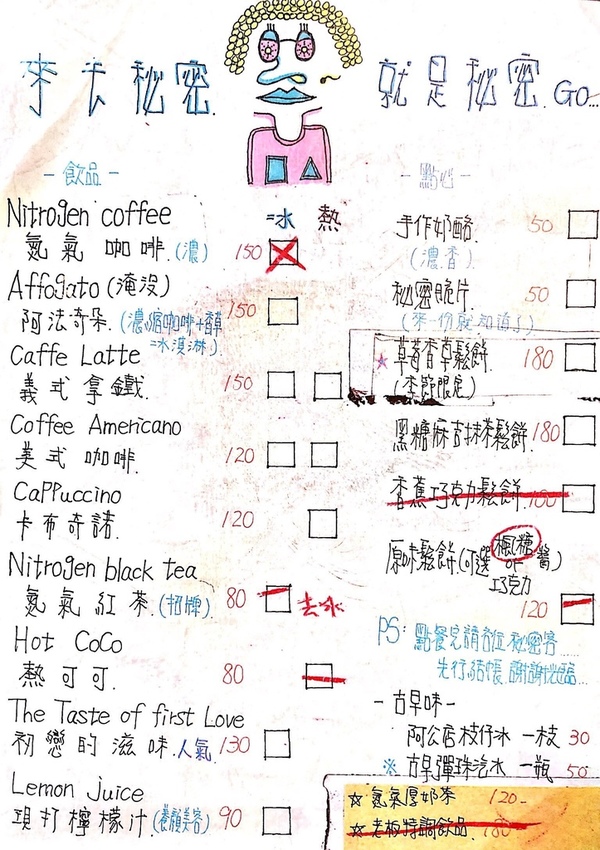 來卡秘密. 就是秘密. Go...
-飲品-
冰 熱
Nitrogen coffee
氮氣咖啡.(濃) 150
Affogato (淹没)
阿法奇朵.(濃縮咖啡+香草 150
冰淇淋)
Caffe Latte
義式拿鐵. 150
Coffee Americano
美式咖啡. 120
Cappuccino
卡布奇諾. 120
Nitrogen black tea
氮氣紅茶.(招牌) 80 去冰
Hot CoCo
熱可可. 80
The Taste of first Love
初戀的滋味.人氣 130
Lemon juice
現打檸檬汁.(養顏美容) 90
-點心-
手作奶酪. 50
(濃香)
秘密脆片. 50
(來一份就知道了)
★草莓香草鬆餅. 180
(季節限定)
黑糖麻吉抹茶鬆餅. 180
香蕉巧克力鬆餅. 160
原味鬆餅.(可選楓糖or巧克力醬)
120
PS: 點餐完請各位秘密客
先行結帳.謝謝
-古早味-
阿公店枝仔冰 一枝 30
※古早彈珠汽水 一瓶 50
☆氮氣厚奶茶 120.
☆老板特調飲品. 180